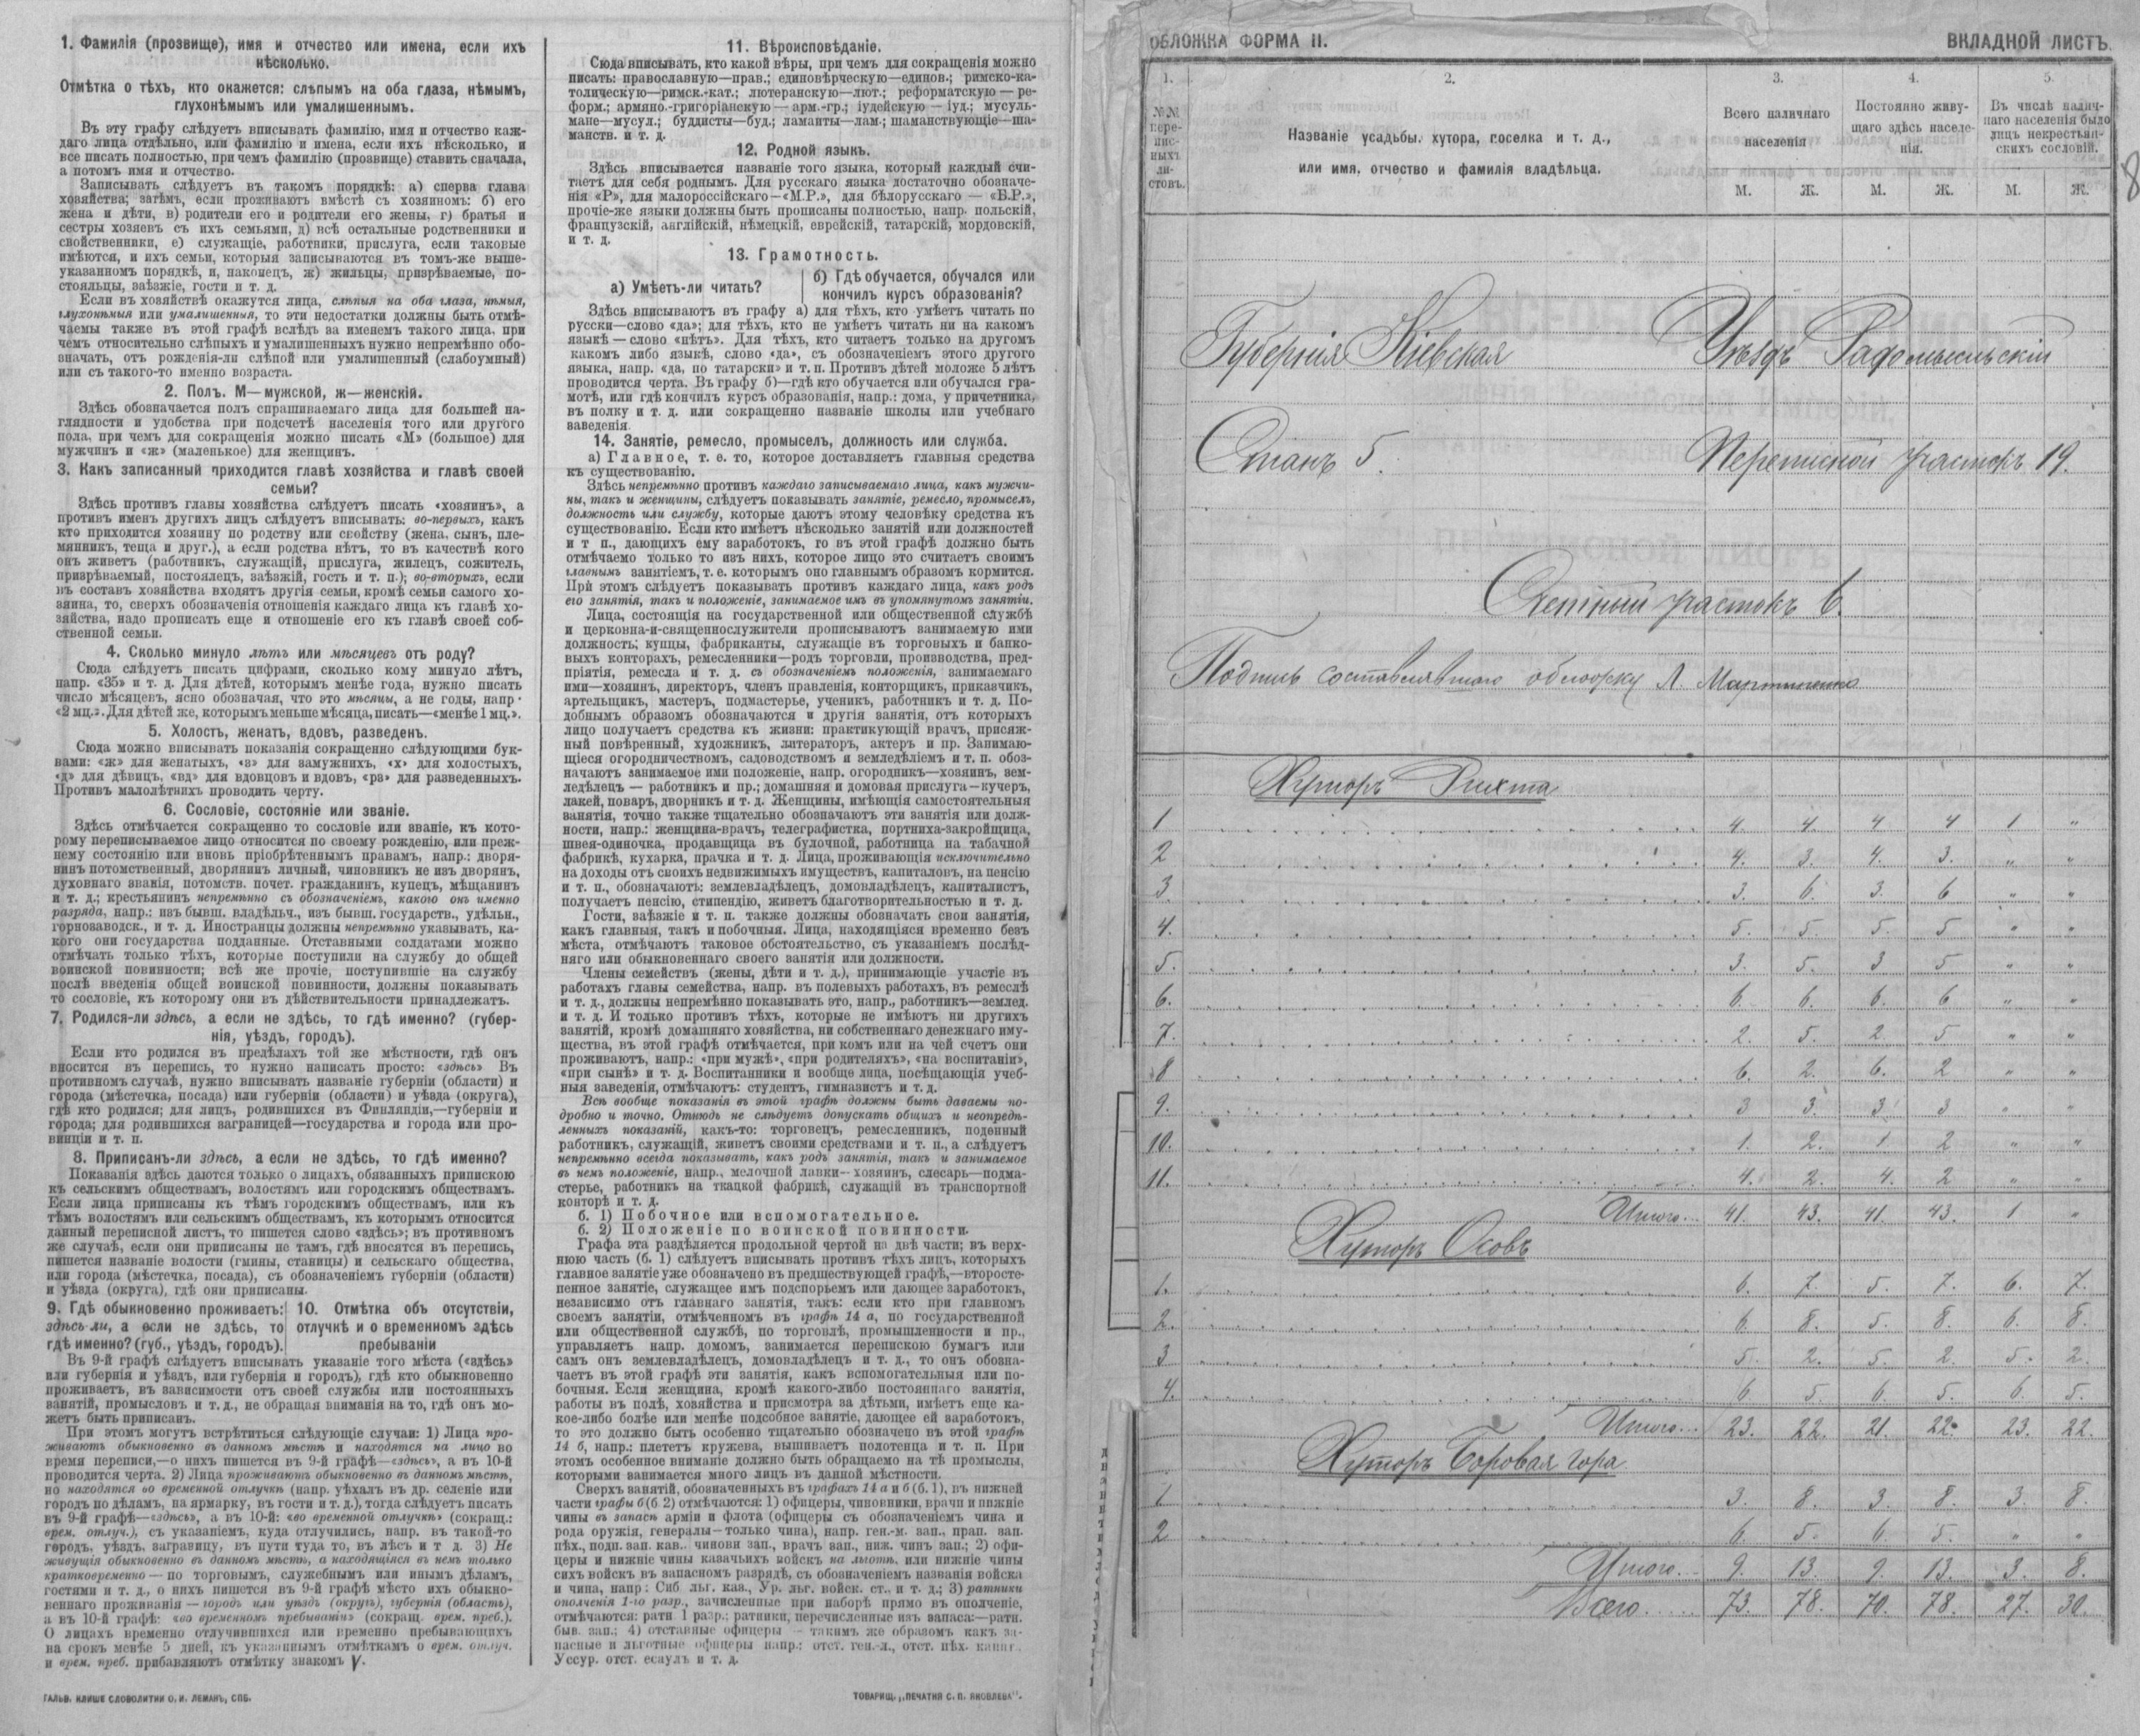 1. Фамилія (прозвище), имя и отчество или имена, если ихъ
нѣсколько.
Отмѣтка о тѣхъ, кто окажется: слѣпымъ на оба глаза, нѣмымъ,
глухонѣмымъ или умалишеннымъ.
Въ эту графу слѣдуетъ вписывать фамилію, имя и отчество каж-
даго лица отдѣльно, или фамилію и имена, если ихъ нѣсколько, и
все писать полностью, при чемъ фамилію (прозвище) ставить сначала,
а потомъ имя и отчество.
Записывать слѣдуетъ въ такомъ порядкѣ: а) сперва глава
хозяйства; затѣмъ, если проживаютъ вмѣстѣ съ хозяиномъ: б) его
жена и дѣти, в) родители его и родители его жены, г) братья и
сестры хозяевъ съ ихъ семьями, д) всѣ остальные родственники и
свойственники, е) служащіе, работники, прислуга, если таковые
имѣются, и ихъ семьи, которыя записываются въ томъ-же выше-
указанномъ порядкѣ, и, наконецъ, ж) жильцы, призрѣваемые, по-
стояльцы, заѣзжіе, гости и т. д.
Если въ хозяйствѣ окажутся лица, слѣпыя на оба глаза, нѣмыя,
глухонѣмыя или умалишенныя, то эти недостатки должны быть отмѣ-
чаемы также въ этой графѣ вслѣдъ за именемъ такого лица, при
чемъ относительно слѣпыхъ и умалишенныхъ нужно непремѣнно обо-
значать, отъ рожденія-ли слѣпой или умалишенный (слабоумный)
или съ такого-то именно возраста.
2. Полъ. М—мужской, ж—женскій.
Здѣсь обозначается полъ спрашиваемаго лица для большей на-
глядности и удобства при подсчетѣ населенія того или другого
пола, при чемъ для сокращенія можно писать «М» (большое) для
мужчинъ и «ж» (маленькое) для женщинъ.
3. Какъ записанный приходится главѣ хозяйства и главѣ своей
семьи?
Здѣсь противъ главы хозяйства слѣдуетъ писать «хозяинъ», а
противъ именъ другихъ лицъ слѣдуетъ вписывать: во-первыхъ, какъ
кто приходится хозяину по родству или свойству (жена, сынъ, пле-
мянникъ, теща и друг.), а если родства нѣтъ, то въ качествѣ кого
онъ живетъ (работникъ, служащій, прислуга, жилецъ, сожитель,
призрѣваемый, постоялецъ, заѣзжій, гость и т. п.); во-вторыхъ, если
въ составъ хозяйства входятъ другія семьи, кромѣ семьи самого хо-
зяина, то, сверхъ обозначенія отношенія каждаго лица къ главѣ хо-
зяйства, надо прописать еще и отношеніе его къ главѣ своей соб-
ственной семьи.
4. Сколько минуло лѣтъ или мѣсяцевъ отъ роду?
Сюда слѣдуетъ писать цифрами, сколько кому минуло лѣтъ,
напр. «35» и т. д. Для дѣтей, которымъ менѣе года, нужно писать
число мѣсяцевъ, ясно обозначая, что это мѣсяцы, а не годы, напр.
«2 мц.». Для дѣтей же, которымъ меньше мѣсяца, писать—«менѣе 1 мц.».
5. Холостъ, женатъ, вдовъ, разведенъ.
Сюда можно вписывать показанія сокращенно слѣдующими бук-
вами: «ж» для женатыхъ, «з» для замужнихъ, «х» для холостыхъ,
«д» для дѣвицъ, «вд» для вдовцовъ и вдовъ, «рз» для разведенныхъ.
Противъ малолѣтнихъ проводить черту.
6. Сословіе, состояніе или званіе.
Здѣсь отмѣчается сокращенно то сословіе или званіе, къ кото-
рому переписываемое лицо относится по своему рожденію, или преж-
нему состоянію или вновь пріобрѣтеннымъ правамъ, напр.: дворя-
нинъ потомственный, дворянинъ личный, чиновникъ не изъ дворянъ,
духовнаго званія, потомств. почет. гражданинъ, купецъ, мѣщанинъ
и т. д.; крестьянинъ непремѣнно съ обозначеніемъ, какого онъ именно
разряда, напр.: изъ бывш. владѣльч., изъ бывш. государств., удѣльн.,
горнозаводск., и т. д. Иностранцы должны непремѣнно указывать, ка-
кого они государства подданные. Отставными солдатами можно
отмѣчать только тѣхъ, которые поступили на службу до общей
воинской повинности; всѣ же прочіе, поступившіе на службу
послѣ введенія общей воинской повинности, должны показывать
то сословіе, къ которому они въ дѣйствительности принадлежатъ.
7. Родился-ли здѣсь, а если не здѣсь, то гдѣ именно? (губер-
нія, уѣздъ, городъ).
Если кто родился въ предѣлахъ той же мѣстности, гдѣ онъ
вносится въ перепись, то нужно написать просто: «здѣсь» Въ
противномъ случаѣ, нужно вписывать названіе губерніи (области) и
города (мѣстечка, посада) или губерніи (области) и уѣзда (округа),
гдѣ кто родился; для лицъ, родившихся въ Финляндіи,—губерніи и
города; для родившихся заграницей—государства и города или про-
винціи и т. п.
8. Приписанъ-ли здѣсь, а если не здѣсь, то гдѣ именно?
Показанія здѣсь даются только о лицахъ, обязанныхъ припискою
къ сельскимъ обществамъ, волостямъ или городскимъ обществамъ.
Если лица приписаны къ тѣмъ городскимъ обществамъ, или къ
тѣмъ волостямъ или сельскимъ обществамъ, къ которымъ относится
данный переписной листъ, то пишется слово «здѣсь»; въ противномъ
же случаѣ, если они приписаны не тамъ, гдѣ вносятся въ перепись,
пишется названіе волости (гмины, станицы) и сельскаго общества,
или города (мѣстечка, посада), съ обозначеніемъ губерніи (области)
и уѣзда (округа), гдѣ они приписаны.
9. Гдѣ обыкновенно проживаетъ:
здѣсь-ли, а если не здѣсь, то
гдѣ именно? (губ., уѣздъ, городъ).
10. Отмѣтка объ отсутствіи,
отлучкѣ и о временномъ здѣсь
пребываніи
Въ 9-й графѣ слѣдуетъ вписывать указаніе того мѣста («здѣсь»
или губернія и уѣздъ, или губернія и городъ), гдѣ кто обыкновенно
проживаетъ, въ зависимости отъ своей службы или постоянныхъ
занятій, промысловъ и т. д., не обращая вниманія на то, гдѣ онъ мо-
жетъ быть приписанъ.
При этомъ могутъ встрѣтиться слѣдующіе случаи: 1) Лица про-
живаютъ обыкновенно въ данномъ мѣстѣ и находятся на лицо во
время переписи,—о нихъ пишется въ 9-й графѣ—«здѣсь», а въ 10-й
проводится черта. 2) Лица проживаютъ обыкновенно въ данномъ мѣстѣ,
но находятся во временной отлучкѣ (напр. уѣхалъ въ др. селеніе или
городъ по дѣламъ, на ярмарку, въ гости и т. д.), тогда слѣдуетъ писать
въ 9-й графѣ—«здѣсь», а въ 10-й: «во временной отлучкѣ» (сокращ.:
врем. отлуч.), съ указаніемъ, куда отлучились, напр. въ такой-то
городъ, уѣздъ, заграницу, въ пути туда то, въ лѣсъ и т д. 3) Не
живущія обыкновенно въ данномъ мѣстѣ, а находящіяся въ немъ только
кратковременно — по торговымъ, служебнымъ или инымъ дѣламъ,
гостями и т. д., о нихъ пишется въ 9-й графѣ мѣсто ихъ обыкно-
веннаго проживанія — городъ или уѣздъ (округъ), губернія (область),
а въ 10-й графѣ: «во временномъ пребываніи» (сокращ. врем. преб.).
О лицахъ временно отлучившихся или временно пребывающихъ
на срокъ менѣе 5 дней, къ указаннымъ отмѣткамъ о врем. отлуч.
и врем. преб. прибавляютъ отмѣтку знакомъ V.
ГАЛЬВ. КЛИШЕ СЛОВОЛИТНИ О. И. ЛЕМАНЪ, СПБ.
11. Вѣроисповѣданіе.
Сюда вписывать, кто какой вѣры, при чемъ для сокращенія можно
писать: православную—прав.; единовѣрческую—единов.; римско-ка-
толическую—римск.-кат.; лютеранскую—лют.; реформатскую — ре-
форм.; армяно.-григоріанскую — арм.-гр.; іудейскую — іуд.; мусуль-
мане—мусул.; буддисты—буд.; ламаиты—лам.; шаманствующіе—ша-
манств. и т. д.
12. Родной языкъ.
Здѣсь вписывается названіе того языка, который каждый счи-
таетъ для себя роднымъ. Для русскаго языка достаточно обозначе-
нія «Р», для малороссійскаго—«М.Р.», для бѣлорусскаго — «Б.Р.»,
прочіе-же языки должны быть прописаны полностью, напр. польскій,
французскій, англійскій, нѣмецкій, еврейскій, татарскій, мордовскій,
и т. д.
13. Грамотность.
а) Умѣетъ-ли читать?
б) Гдѣ обучается, обучался или
кончилъ курсъ образованія?
Здѣсь вписываютъ въ графу а) для тѣхъ, кто умѣетъ читать по
русски—слово «да»; для тѣхъ, кто не умѣетъ читать ни на какомъ
языкѣ — слово «нѣтъ». Для тѣхъ, кто читаетъ только на другомъ
какомъ либо языкѣ, слово «да», съ обозначеніемъ этого другого
языка, напр. «да, по татарски» и т. п. Противъ дѣтей моложе 5 лѣтъ
проводится черта. Въ графу б)—гдѣ кто обучается или обучался гра-
мотѣ, или гдѣ кончилъ курсъ образованія, напр.: дома, у причетника,
въ полку и т. д. или сокращенно названіе школы или учебнаго
заведенія.
14. Занятіе, ремесло, промыселъ, должность или служба.
а) Главное, т. е. то, которое доставляетъ главныя средства
къ существованію.
Здѣсь непремѣнно противъ каждаго записываемаго лица, какъ мужчи-
ны, такъ и женщины, слѣдуетъ показывать занятіе, ремесло, промыселъ,
должность или службу, которые даютъ этому человѣку средства къ
существованію. Если кто имѣетъ нѣсколько занятій или должностей
и т п., дающихъ ему заработокъ, то въ этой графѣ должно быть
отмѣчаемо только то изъ нихъ, которое лицо это считаетъ своимъ
главнымъ занятіемъ, т. е. которымъ оно главнымъ образомъ кормится.
При этомъ слѣдуетъ показывать противъ каждаго лица, какъ родъ
его занятія, такъ и положеніе, занимаемое имъ въ упомянутомъ занятіи.
Лица, состоящія на государственной или общественной службѣ
и церковно-и-священнослужители прописываютъ занимаемую ими
должность; купцы, фабриканты, служащіе въ торговыхъ и банко-
выхъ конторахъ, ремесленники—родъ торговли, производства, пред-
пріятія, ремесла и т. д. съ обозначеніемъ положенія, занимаемаго
ими—хозяинъ, директоръ, членъ правленія, конторщикъ, приказчикъ,
артельщикъ, мастеръ, подмастерье, ученикъ, работникъ и т. д. По-
добнымъ образомъ обозначаются и другія занятія, отъ которыхъ
лицо получаетъ средства къ жизни: практикующій врачъ, присяж-
ный повѣренный, художникъ, литераторъ, актеръ и пр. Занимаю-
щіеся огородничествомъ, садоводствомъ и земледѣліемъ и т. п. обоз-
начаютъ занимаемое ими положеніе, напр. огородникъ—хозяинъ, зем-
ледѣлецъ — работникъ и пр.; домашняя и домовая прислуга—кучеръ,
лакей, поваръ, дворникъ и т. д. Женщины, имѣющія самостоятельныя
занятія, точно также тщательно обозначаютъ эти занятія или долж-
ности, напр.: женщина-врачъ, телеграфистка, портниха-закройщица,
швея-одиночка, продавщица въ булочной, работница на табачной
фабрикѣ, кухарка, прачка и т. д. Лица, проживающія исключительно
на доходы отъ своихъ недвижимыхъ имуществъ, капиталовъ, на пенсію
и т. п., обозначаютъ: землевладѣлецъ, домовладѣлецъ, капиталистъ,
получаетъ пенсію, стипендію, живетъ благотворительностью и т. д.
Гости, заѣзжіе и т. п. также должны обозначать свои занятія,
какъ главныя, такъ и побочныя. Лица, находящіяся временно безъ
мѣста, отмѣчаютъ таковое обстоятельство, съ указаніемъ послѣд-
няго или обыкновеннаго своего занятія или должности.
Члены семействъ (жены, дѣти и т. д.), принимающіе участіе въ
работахъ главы семейства, напр. въ полевыхъ работахъ, въ ремеслѣ
и т. д., должны непремѣнно показывать это, напр., работникъ—землед.
и т. д. И только противъ тѣхъ, которые не имѣютъ ни другихъ
занятій, кромѣ домашняго хозяйства, ни собственнаго денежнаго иму-
щества, въ этой графѣ отмѣчается, при комъ или на чей счетъ они
проживаютъ, напр.: «при мужѣ», «при родителяхъ», «на воспитаніи»,
«при сынѣ» и т. д. Воспитанники и вообще лица, посѣщающія учеб-
ныя заведенія, отмѣчаютъ: студентъ, гимназистъ и т. д.
Всѣ вообще показанія въ этой графѣ должны быть даваемы по-
дробно и точно. Отнюдь не слѣдуетъ допускать общихъ и неопредѣ-
ленныхъ показаній, какъ-то: торговецъ, ремесленникъ, поденный
работникъ, служащій, живетъ своими средствами и т. п., а слѣдуетъ
непремѣнно всегда показывать, какъ родъ занятія, такъ и занимаемое
въ немъ положеніе, напр., мелочной лавки--хозяинъ, слесарь—подма-
стерье, работникъ на ткацкой фабрикѣ, служащій въ транспортной
конторѣ и т. д.
б. 1) Побочное или вспомогательное.
б. 2) Положеніе по воинской повинности.
Графа эта раздѣляется продольной чертой на двѣ части; въ верх-
нюю часть (б. 1) слѣдуетъ вписывать противъ тѣхъ лицъ, которыхъ
главное занятіе уже обозначено въ предшествующей графѣ,—второсте-
пенное занятіе, служащее имъ подспорьемъ или дающее заработокъ,
независимо отъ главнаго занятія, такъ: если кто при главномъ
своемъ занятіи, отмѣченномъ въ графѣ 14 а, по государственной
или общественной службѣ, по торговлѣ, промышленности и пр.,
управляетъ напр. домомъ, занимается перепискою бумагъ или
самъ онъ землевладѣлецъ, домовладѣлецъ и т. д., то онъ обозна-
чаетъ въ этой графѣ эти занятія, какъ вспомогательныя или по-
бочныя. Если женщина, кромѣ какого-либо постояннаго занятія,
работы въ полѣ, хозяйства и присмотра за дѣтьми, имѣетъ еще ка-
кое-либо болѣе или менѣе подсобное занятіе, дающее ей заработокъ,
то это должно быть особенно тщательно обозначено въ этой графѣ
14 б, напр.: плететъ кружева, вышиваетъ полотенца и т. п. При
этомъ особенное вниманіе должно быть обращаемо на тѣ промыслы,
которыми занимается много лицъ въ данной мѣстности.
Сверхъ занятій, обозначенныхъ въ графахъ 14 а и б (б. 1), въ нижней
части графы б (б 2) отмѣчаются: 1) офицеры, чиновники, врачи и нижніе
чины въ запасѣ арміи и флота (офицеры съ обозначеніемъ чина и
рода оружія, генералы—только чина), напр. ген.-м. зап., прап. зап.
пѣх., подп. зап. кав.. чиновн зап., врачъ зап., ниж. чинъ зап.; 2) офи-
церы и нижніе чины казачьихъ войскъ на льготѣ, или нижніе чины
сихъ войскъ въ запасномъ разрядѣ, съ обозначеніемъ названія войска
и чина, напр: Сиб льг. каз., Ур. льг. войск. ст., и т. д.; 3) ратники
ополченія 1-го разр., зачисленные при наборѣ прямо въ ополченіе,
отмѣчаются: ратн. 1 разр.; ратники, перечисленные изъ запаса:—ратн.
быв. зап.; 4) отставные офицеры — такимъ же образомъ какъ за-
пасные и льготные офицеры напр.: отст. ген.-л., отст. пѣх. капит.,
Уссур. отст. есаулъ и т. д.
ТОВАРИЩ. „ПЕЧАТНЯ С. П. ЯКОВЛЕВА".
ОБЛОЖКА ФОРМА II. ВКЛАДНОЙ ЛИСТЪ.
1. 2. 3. 4. 5.
№№ пере-писныхъ ли-стовъ.
Названіе усадьбы, хутора, поселка и т. д.,
или имя, отчество и фамилія владѣльца.
Всего наличнаго
населенія
Постоянно живу-
щаго здѣсь населе-
нія.
Въ числѣ налич-
наго населенія было
лицъ некрестьян-
скихъ сословій.
М. Ж. М. Ж. М. Ж.
8
Губернія Кіевская Уѣздъ Радомысльскій
Станъ 5. Переписной участокъ 19.
Счетный участокъ 6.
Подпись составлявшаго обложку Л. Мартыненко
Хуторъ Рихта
1 4. 4. 4 4 1 "
2 4. 3. 4. 3. " "
3. 3. 6. 3. 6 " "
4. 5. 5. 5. 5 " "
5. 3. 5. 3 5 " "
6. 6. 6. 6. 6 " "
7. 2. 5. 2. 5 " "
8 6. 2. 6. 2 " "
9. 3 3. 3. 3 " "
10. 1. 2. 1 2 " "
11. 4. 2. 4. 2 " "
Итого... 41. 43. 41. 43. 1 "
Хуторъ Осовъ
1. 6. 7. 5. 7. 6. 7.
2. 6. 8. 5. 8. 6. 8.
3 5. 2. 5. 2. 5. 2.
4. 6 5. 6. 5. 6. 5.
Итого... 23. 22. 21. 22. 23. 22.
Хуторъ Боровая гора
1 3. 8. 3. 8. 3. 8.
2 6. 5. 6. 5. " "
Итого... 9. 13. 9. 13. 3. 8.
Всего..... 73. 78. 70. 78. 27. 30.